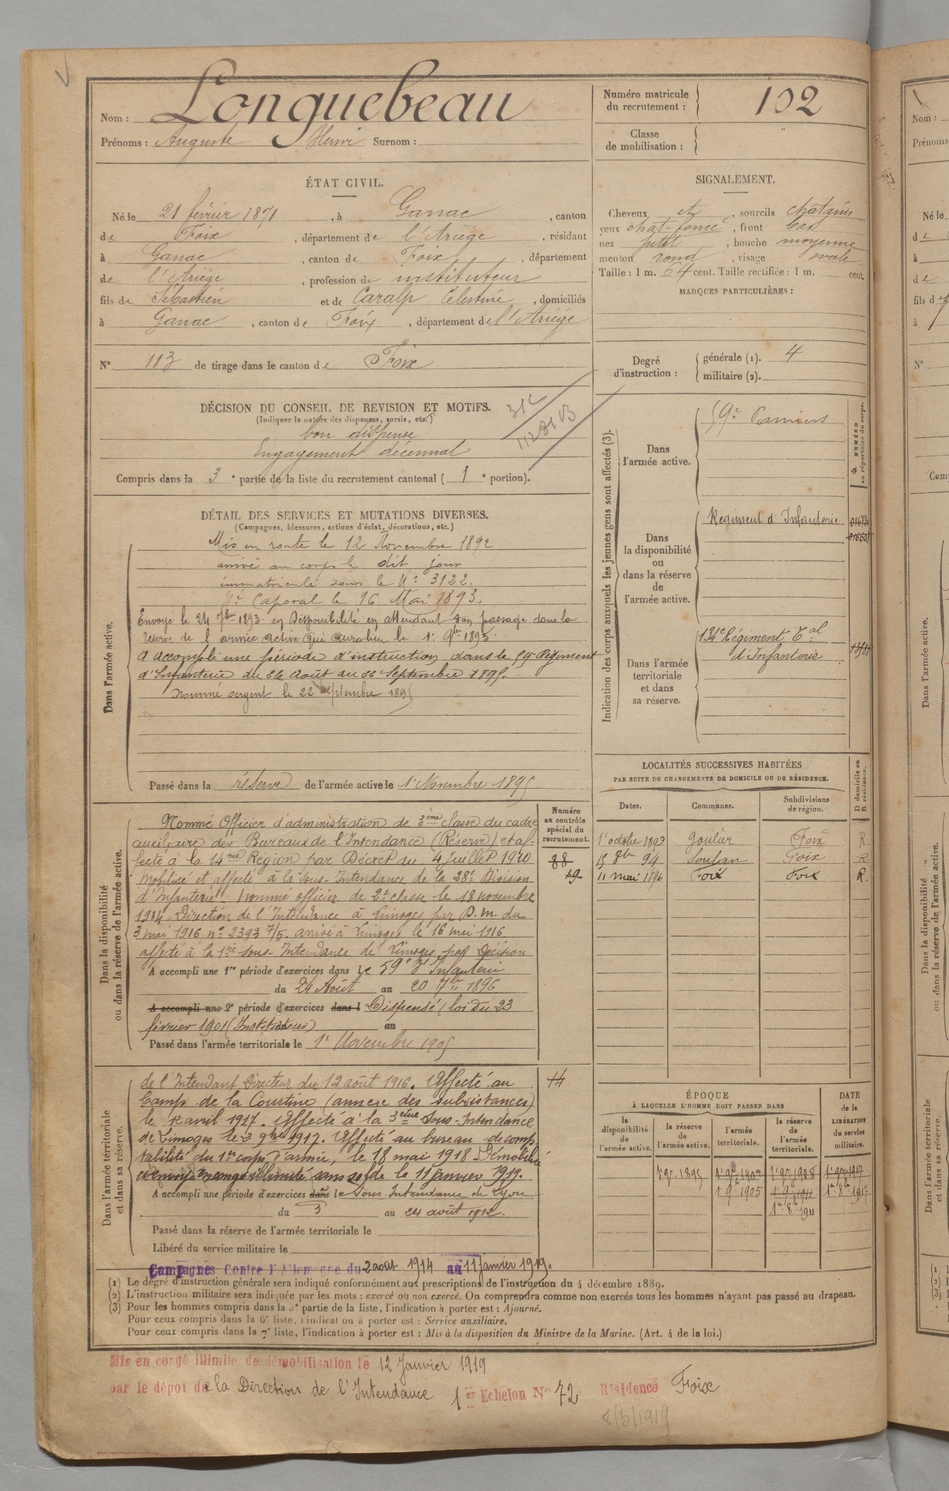 Nom : Longuebeau
Prénoms : Auguste Henri Surnom :
Numéro matricule du recrutement : 102
Classe de mobilisation :
ÉTAT CIVIL.
Né le 21 février 1871, à Ganac, canton
de Foix, département de l'Ariège, résidant
à Ganac, canton de Foix, département
de l'Ariège, profession de instituteur
fils de Sébastien et de Caralp Célestine, domiciliés
à Ganac, canton de Foix, département de l'Ariège
N° 113 de tirage dans le canton de Foix
SIGNALEMENT.
Cheveux et, sourcils châtains
yeux chat-foncé, front bas
nez petit, bouche moyenne
menton rond, visage ovale
Taille : 1 m. 64 cent. Taille rectifiée : 1 m. cent.
MARQUES PARTICULIÈRES :
Degré d'instruction : générale (1). 4
militaire (2).
DÉCISION DU CONSEIL DE REVISION ET MOTIFS.
(Indiquer la nature des dispenses, sursis, etc.)
bon dispensé
Engagement décennal
Compris dans la 3e partie de la liste du recrutement cantonal (1e portion).
DÉTAIL DES SERVICES ET MUTATIONS DIVERSES.
(Campagnes, blessures, actions d'éclat, décorations, etc.)
Dans l'armée active.
Mis en route le 12 Novembre 1892
arrivé au corps le dit jour
immatriculé sous le N° 3122.
Né Caporal le 16 Mai 1893.
Envoyé le 24 7bre 1893 en Disponibilité en attendant son passage dans la
réserve de l'armée active qui aura lieu le 1er 9bre 1895.
A accompli une période d'instruction dans le 59e Régiment
d'Infanterie du 26 Août au 22 Septembre 1895.
Nommé sergent le 22 septembre 1895
Passé dans la réserve de l'armée active le 1er Novembre 1895
Indication des corps auxquels les jeunes gens sont affectés (3).
Dans l'armée active.
59e Pamiers
Dans la disponibilité ou dans la réserve de l'armée active.
Régiment d'Infanterie
Dans l'armée territoriale et dans sa réserve.
134e Régiment Tal
d'Infanterie
LOCALITÉS SUCCESSIVES HABITÉES
PAR SUITE DE CHANGEMENTS DE DOMICILE OU DE RÉSIDENCE.
Dates. Communes. Subdivisions de région. D domicile ou R résidence.
1er octobre 1893 Goulier Foix R
15 8bre 94 Soulan Foix R
11 mai 1896 Foix Foix R.
Dans la disponibilité ou dans la réserve de l'armée active.
Numéro au contrôle spécial du recrutement.
Nommé Officier d'administration de 3ème classe du cadre
auxiliaire des Bureaux de l'Intendance (Réserve) et af-
fecté à la 14me Région par Décret du 4 Juillet 1910
Mobilisé et affecté à la Sous-Intendance de la 28e Division
d'Infanterie. Nommé officier de 2e classe le 18 novembre
1914. Direction de l'Intendance à Limoges par D.m. du
3 mai 1916 n° 2393 7/5. arrivé à Limoges le 16 mai 1916
affecté à la 1ère Sous-Intendance de Limoges par Décision
A accompli une 1re période d'exercices dans le 59e d'Infanterie
du 24 Août au 20 7bre 1896
A accompli une 2e période d'exercices dans l Dispensé (loi du 23
février 1901 (Instituteur) au
Passé dans l'armée territoriale le 1er Novembre 1905
Dans l'armée territoriale et dans sa réserve.
de l'Intendant Directeur du 12 août 1916. Affecté au
Camp de la Courtine (annexe des subsistances)
le avril 1917. Affecté à la 3ème Sous-Intendance
de Limoges le 3 9bre 1917. Affecté au bureau de comp-
tabilité du 1er corps d'armée, le 18 mai 1918 Démobilisé
illimité sans solde le 11 janvier 1919.
A accompli une période d'exercices dans la Sous-Intendance de Lyon
du 3 au 24 août 1912.
Passé dans la réserve de l'armée territoriale le
Libéré du service militaire le
Campagnes Contre l'Allemagne du 2 août 1914 au 11 janvier 1919.
ÉPOQUE
À LAQUELLE L'HOMME DOIT PASSER DANS
la disponibilité de l'armée active. la réserve de l'armée active. l'armée territoriale. la réserve de l'armée territoriale.
DATE de la LIBÉRATION du service militaire.
(1) Le degré d'instruction générale sera indiqué conformément aux prescriptions de l'instruction du 4 décembre 1889.
(2) L'instruction militaire sera indiquée par les mots : exercé ou non exercé. On comprendra comme non exercés tous les hommes n'ayant pas passé au drapeau.
(3) Pour les hommes compris dans la 5e partie de la liste, l'indication à porter est : Ajourné.
Pour ceux compris dans la 6e liste, l'indication à porter est : Service auxiliaire.
Pour ceux compris dans la 7e liste, l'indication à porter est : Mis à la disposition du Ministre de la Marine. (Art. 4 de la loi.)
Mis en congé illimité de démobilisation le 12 Janvier 1919
par le dépôt de la Direction de l'Intendance 1er Echelon N° 72 Résidence Foix